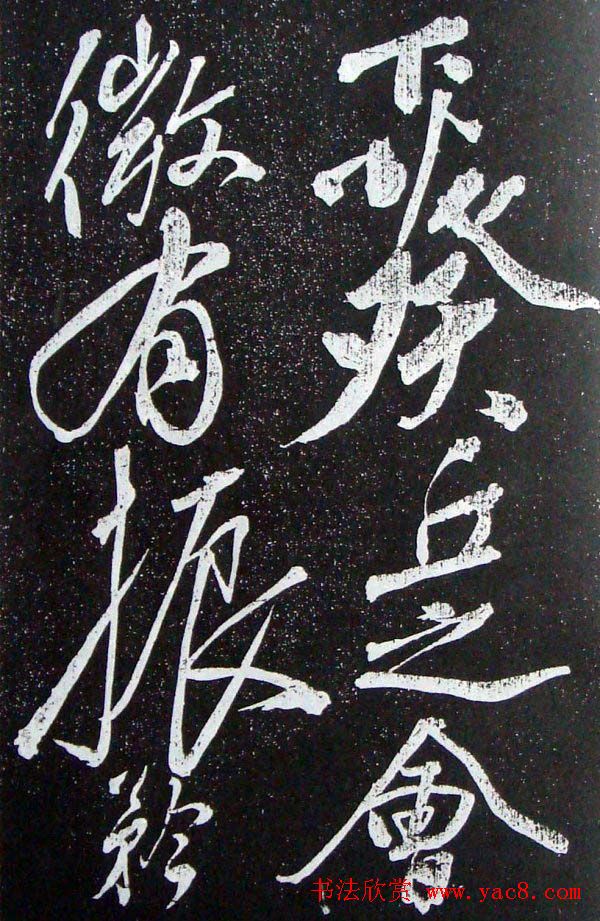 葵丘之會
微有振矜
书法欣赏 www.yac8.com